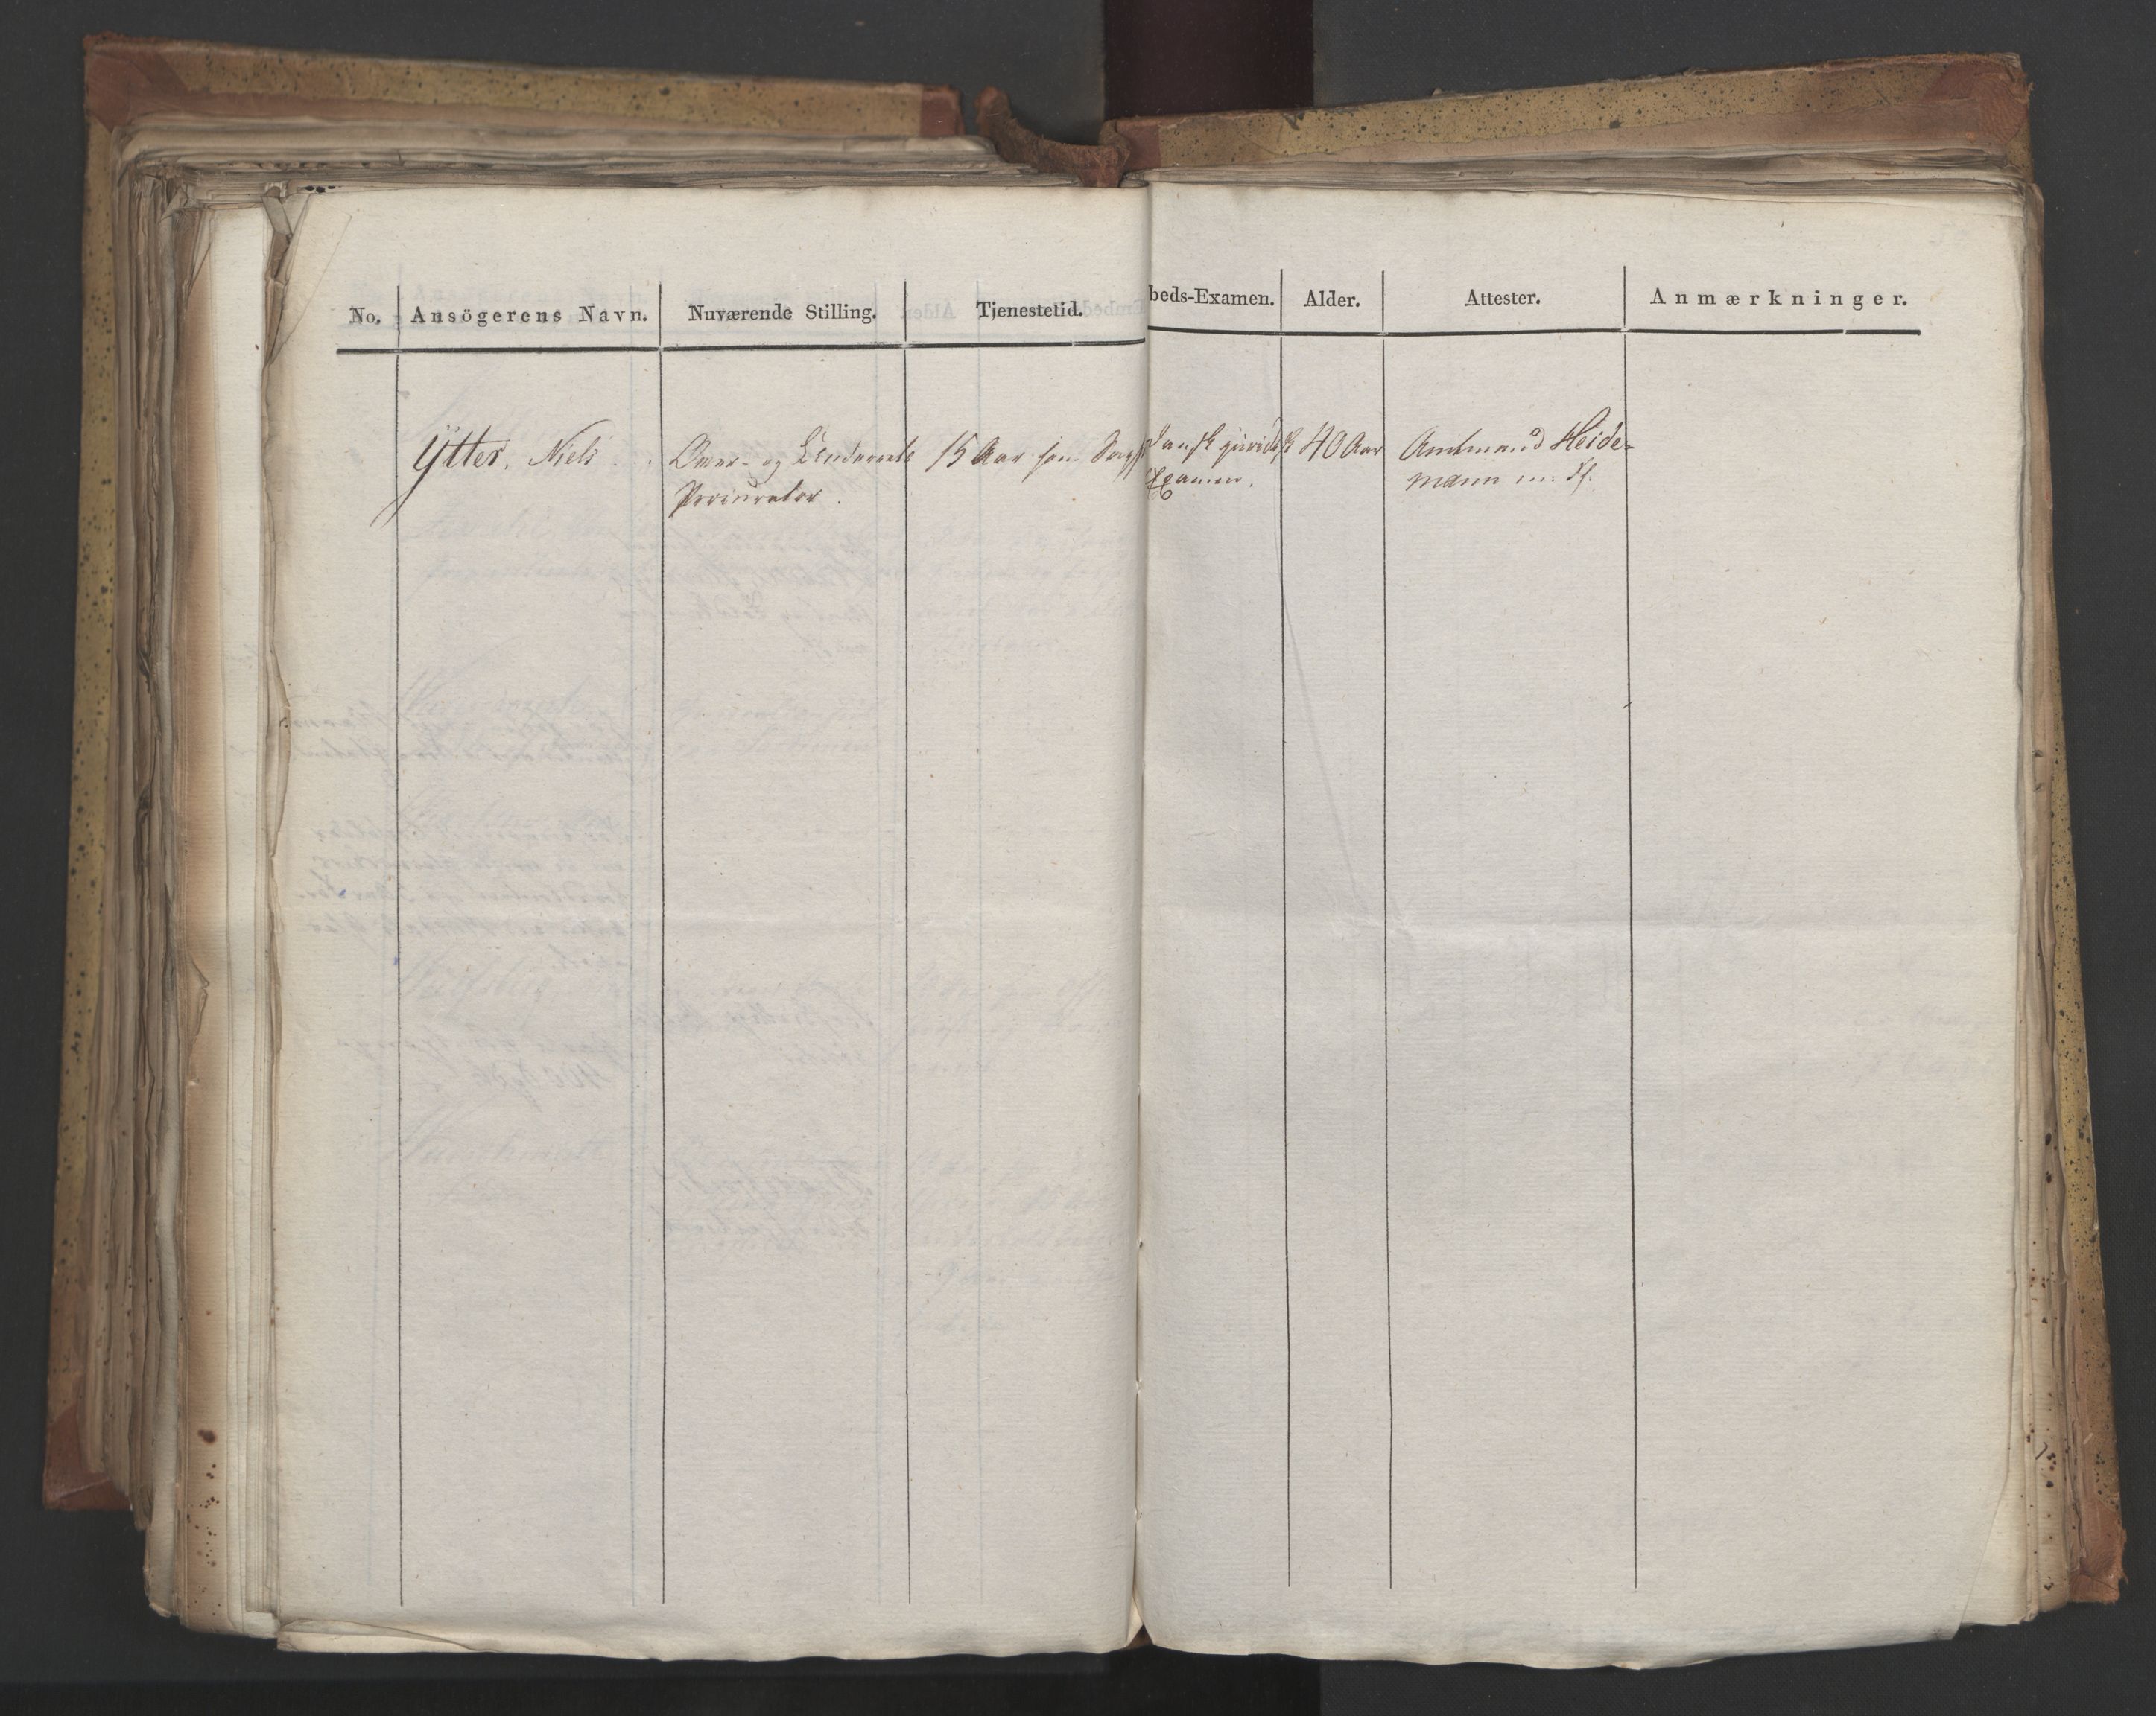 No. Ansögerens Navn. Nuværende Stilling. Tjenestetid.
beds-Examen. Alder. Attester. Anmærkninger.
Ytter, Niels Over- og Underrets 15 Aar som
Procurator.
Dansk juridisk 40 Aar Amtmand Heide-
Examen. mann m: fl.